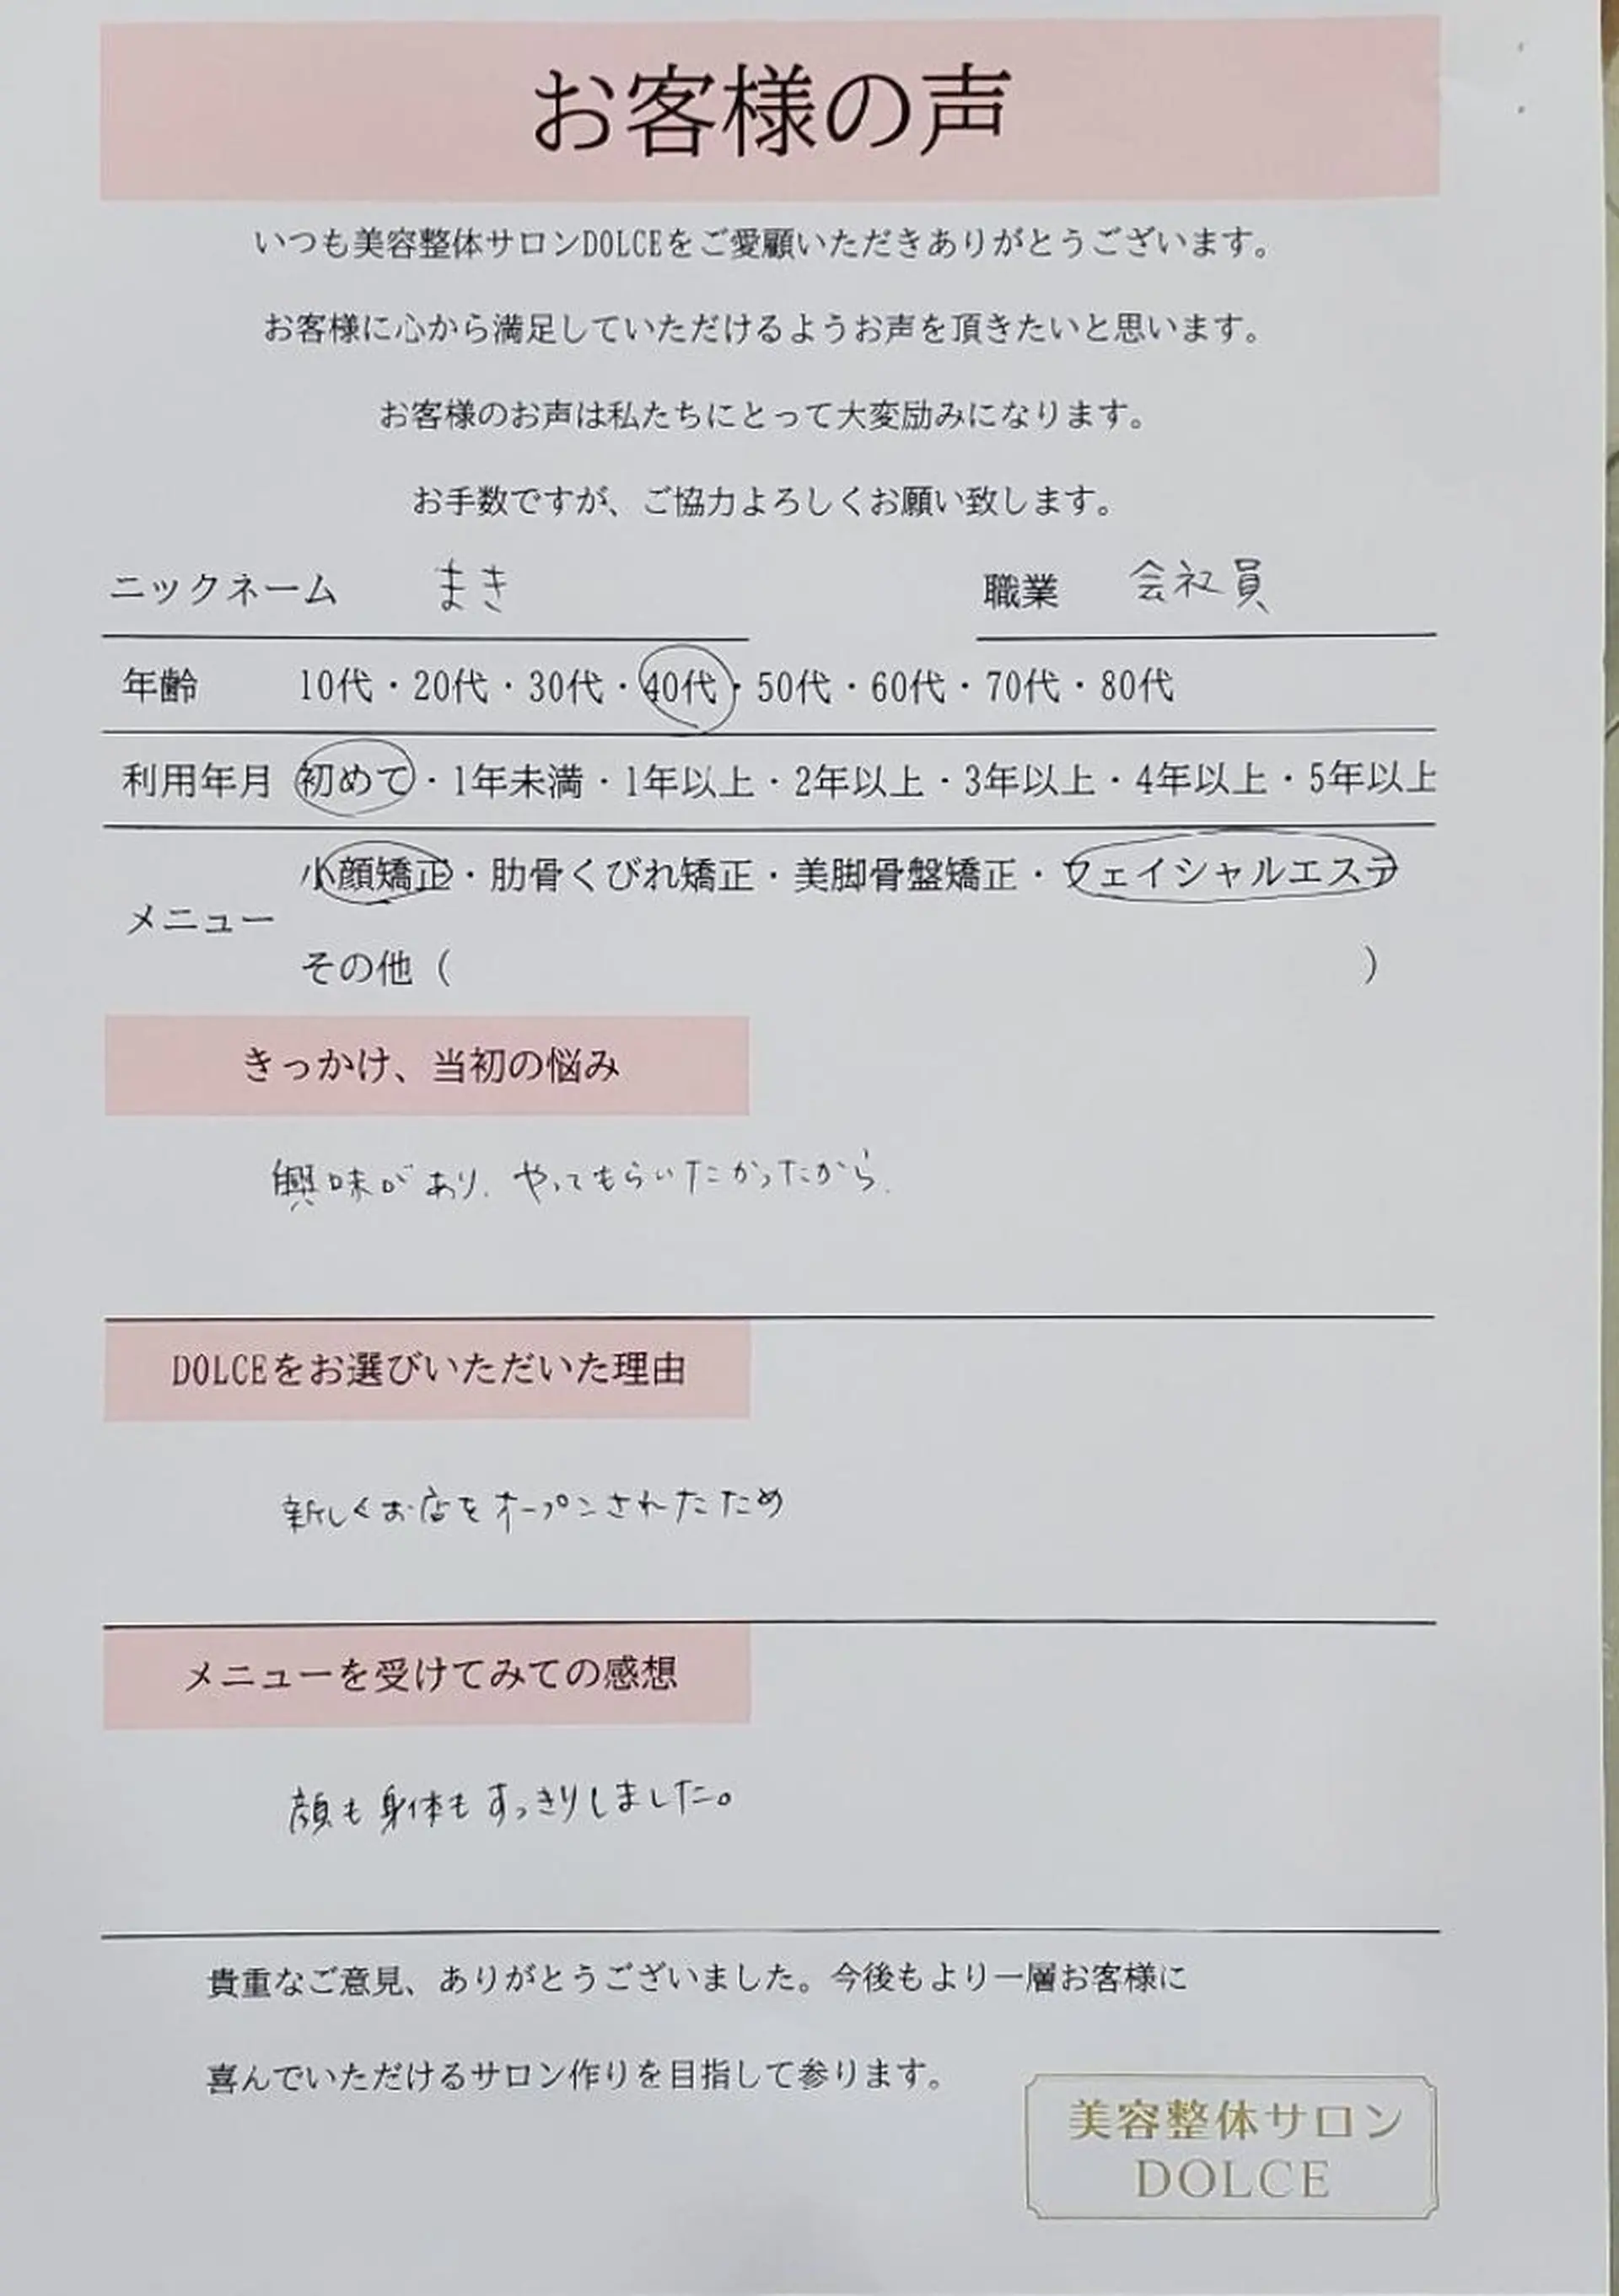 お客様の声
いつも美容整体サロンDOLCEをご愛顧いただきありがとうございます。
お客様に心から満足していただけるようお声を頂きたいと思います。
お客様のお声は私たちにとって大変励みになります。
お手数ですが、ご協力よろしくお願い致します。
ニックネーム まき 職業 会社員
年齢 10代・20代・30代・40代・50代・60代・70代・80代
利用年月 初めて・1年未満・1年以上・2年以上・3年以上・4年以上・5年以上
小顔矯正・肋骨くびれ矯正・美脚骨盤矯正・フェイシャルエステ
メニュー
その他（ ）
きっかけ、当初の悩み
興味があり、やってもらいたかったから.
DOLCEをお選びいただいた理由
新しくお店をオープンされたため
メニューを受けてみての感想
顔も身体もすっきりしました。
貴重なご意見、ありがとうございました。今後もより一層お客様に
喜んでいただけるサロン作りを目指して参ります。
美容整体サロン
DOLCE